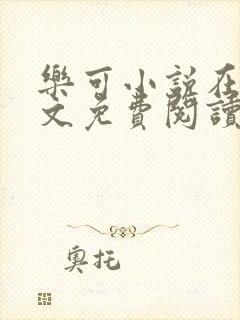 樂可小說在
文免費閱讀
奧托